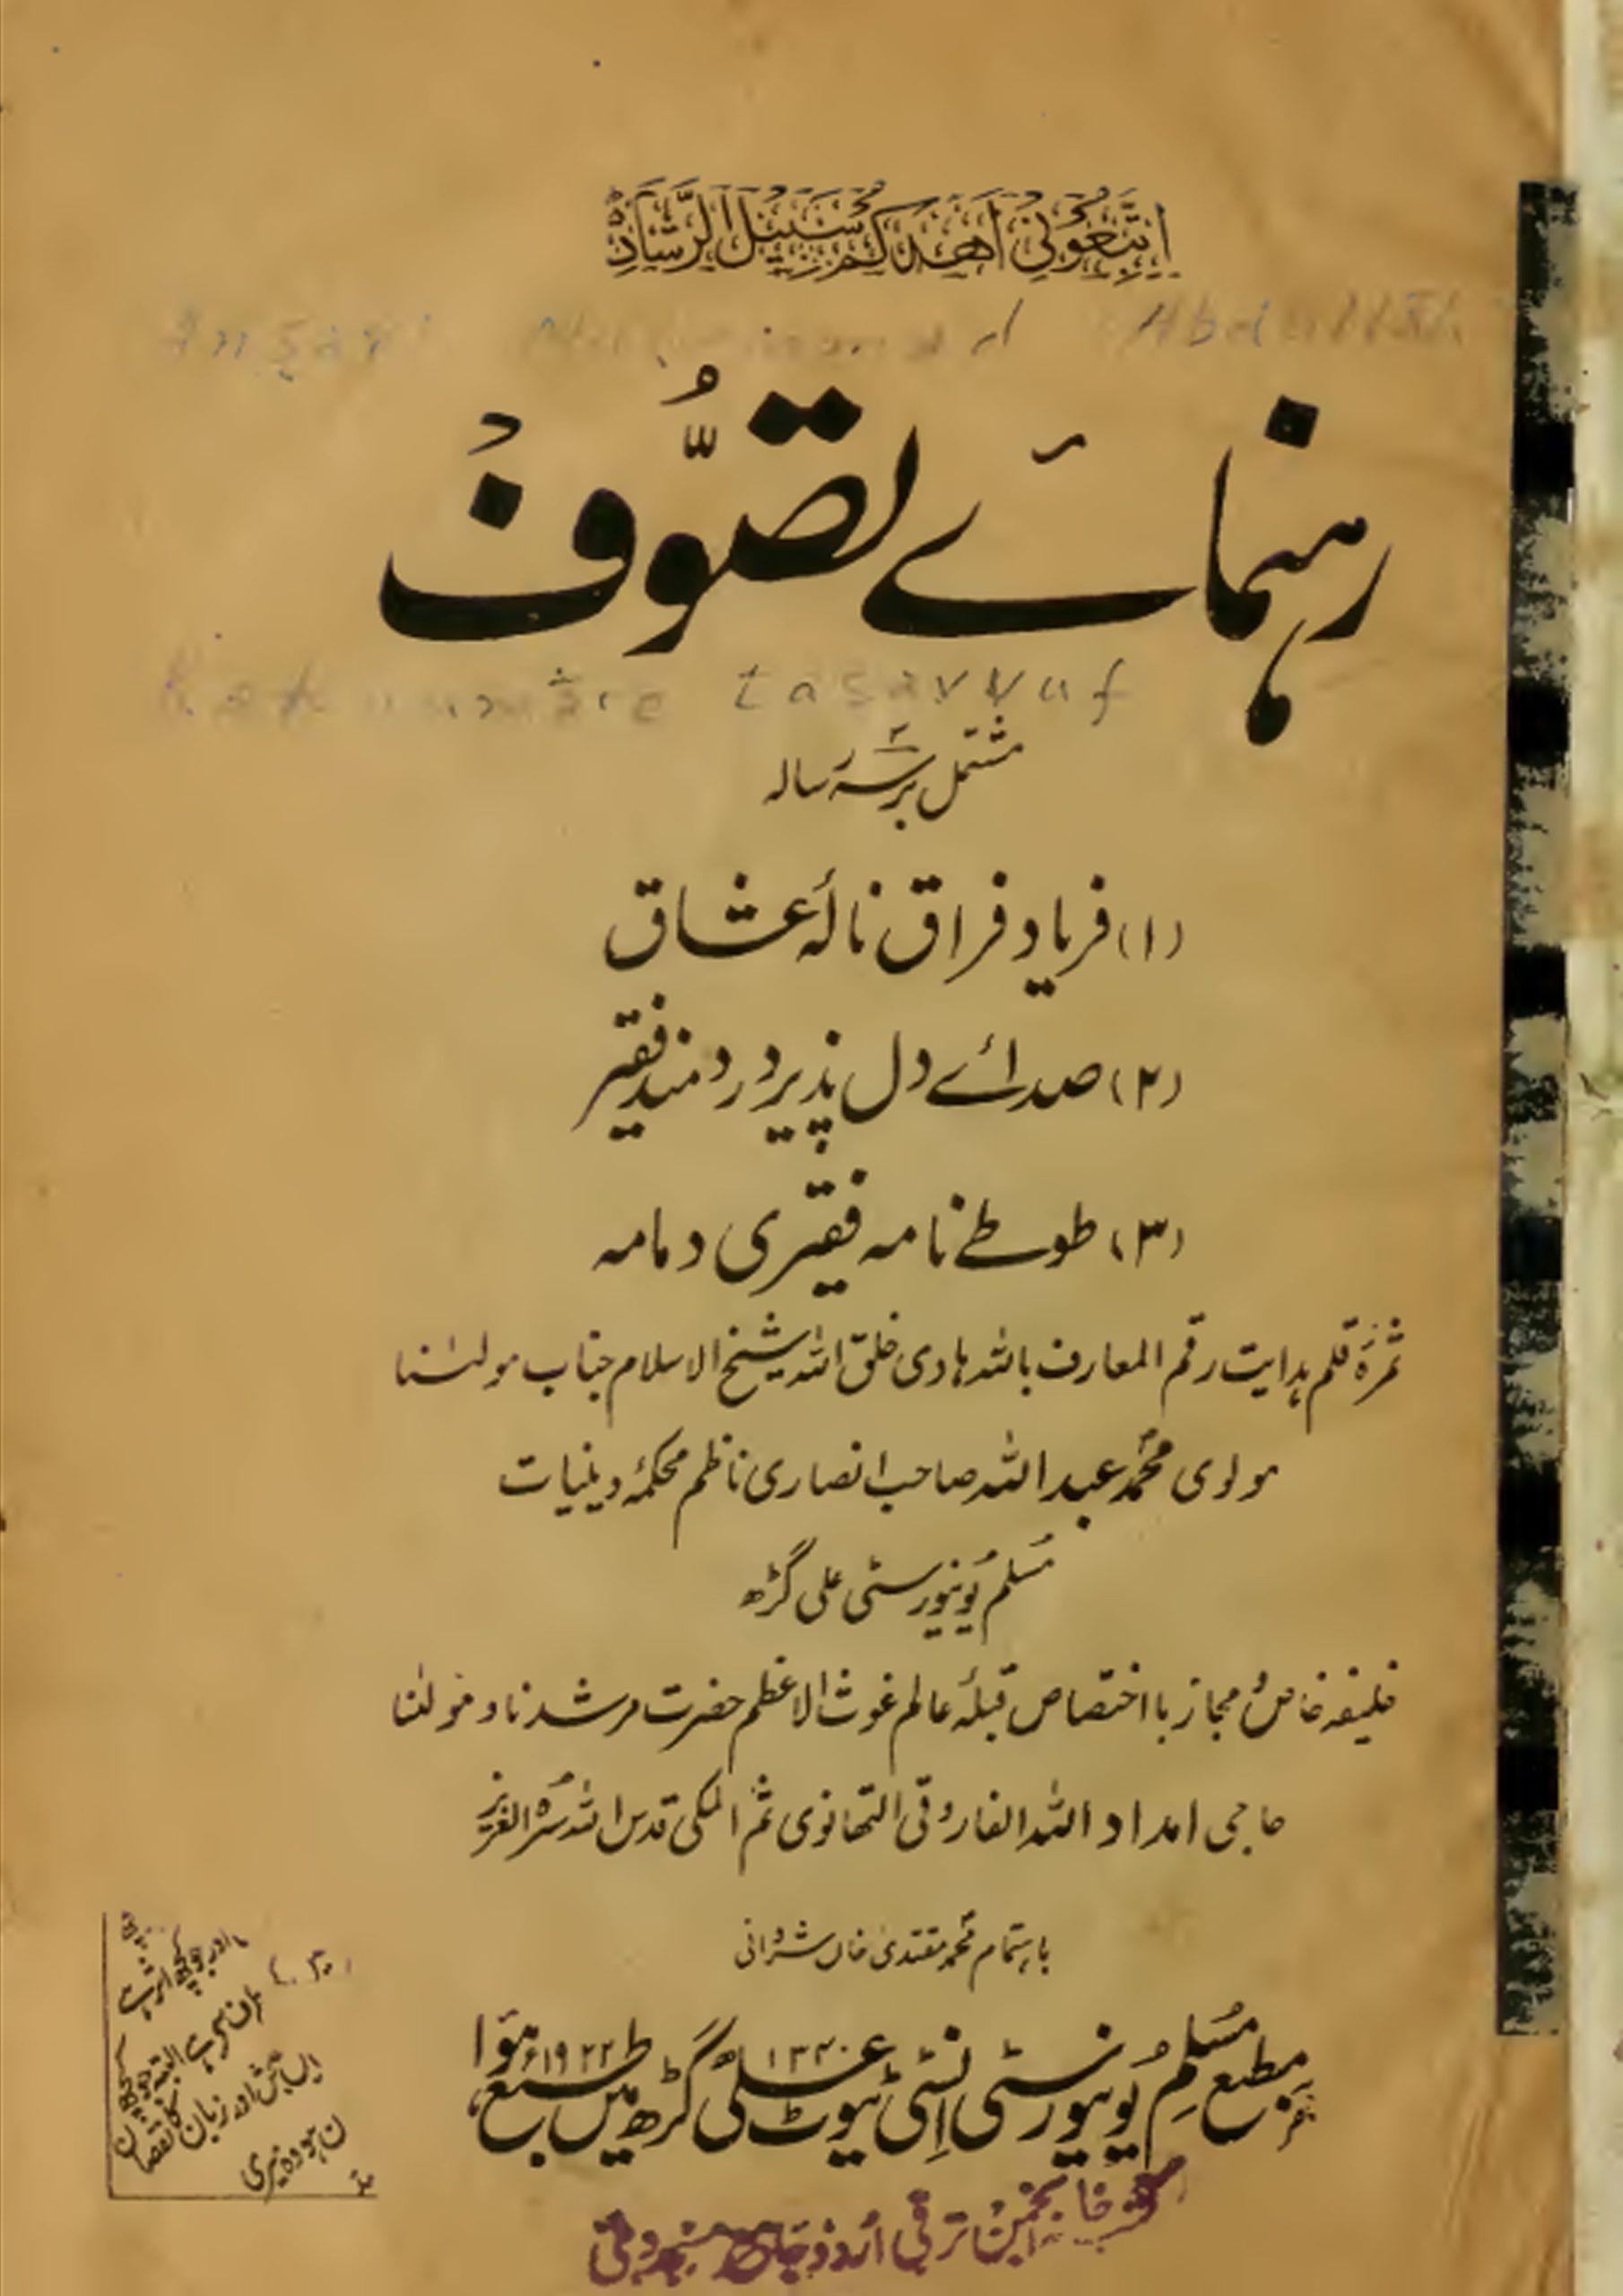 اِتَّبِعُونِ اَهْدِكُمْ سَبِيْلَ الرَّشَادِ
Ansari Muhammad Abdullah
رہنمائے تصوُّف
Rahnumā'e taṣavvuf
مشتمل بر سہ رسالہ
(۱) فریاد فراق نالۂ عشاق
(۲) صدائے دل پذیر درد مند فقیر
(۳) طوطے نامہ فقیری دمامہ
ثمرۂ قلم ہدایت رقم المعارف باللہ ہادی خلق اللہ شیخ الاسلام جناب مولٰنا
مولوی محمّد عبد اللہ صاحب انصاری ناظم محکمۂ دینیات
مُسلم یُونیورسٹی علی گڑھ
خلیفہ خاص و مجاز با اختصاص قبلۂ عالم غوث الاعظم حضرت مرشدنا و مولٰنا
حاجی امداد اللہ الفاروقی التھانوی ثم المکی قدس اللہ سرہ العزیز
باہتمام محمد مقتدیٰ خاں شروانی
مطبع مُسلم یُونیورسٹی انسٹی ٹیوٹ علی گڑھ میں طبع ہؤا
۱۳۴۰ ۱۹۲۲ء
اور جو کچھ اثر ہے
البتہ
اور زبان کا نقصان
کتب خانہ انجمن ترقی اردو جامع مسجد دہلی